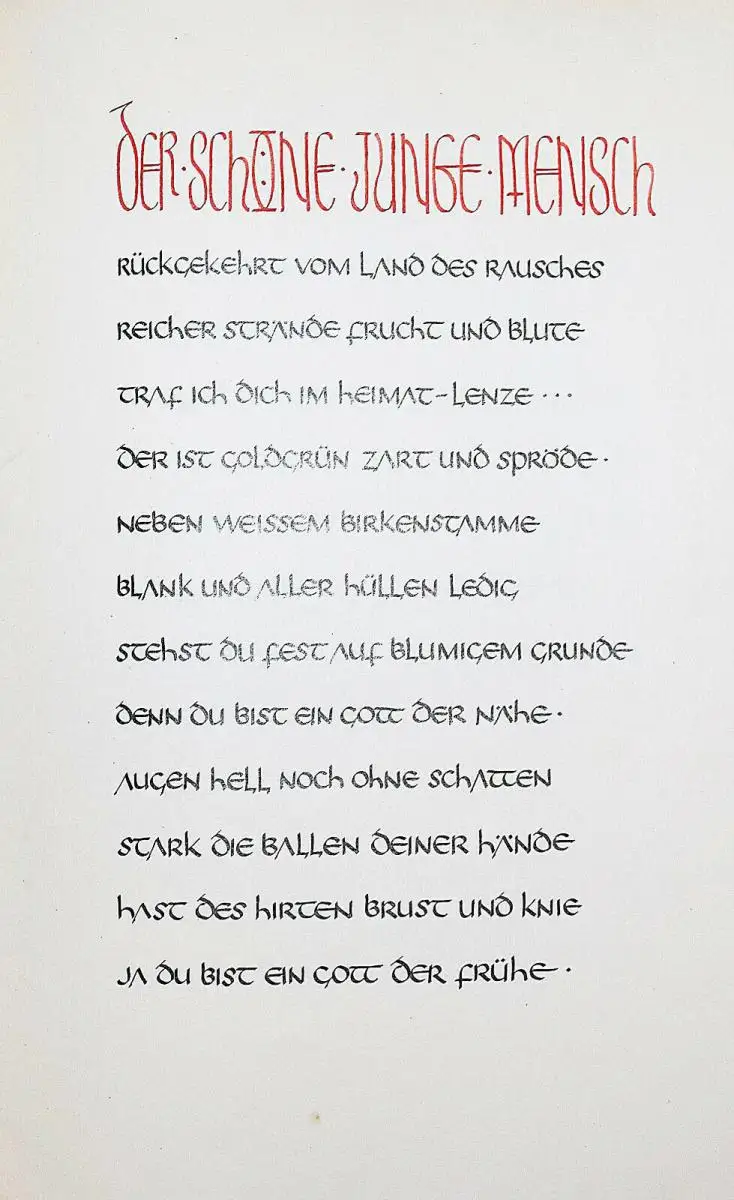 DER · SCHÖNE · JUNGE · MENSCH
RÜCKGEKEHRT VOM LAND DES RAUSCHES
REICHER STRÄNDE FRUCHT UND BLUTE
TRAF ICH DICH IM HEIMAT-LENZE ···
DER IST GOLDGRÜN ZART UND SPRÖDE ·
NEBEN WEISSEM BIRKENSTAMME
BLANK UND ALLER HÜLLEN LEDIG
STEHST DU FEST AUF BLUMIGEM GRUNDE
DENN DU BIST EIN GOTT DER NÄHE ·
AUGEN HELL NOCH OHNE SCHATTEN
STARK DIE BALLEN DEINER HÄNDE
HAST DES HIRTEN BRUST UND KNIE
JA DU BIST EIN GOTT DER FRÜHE ·